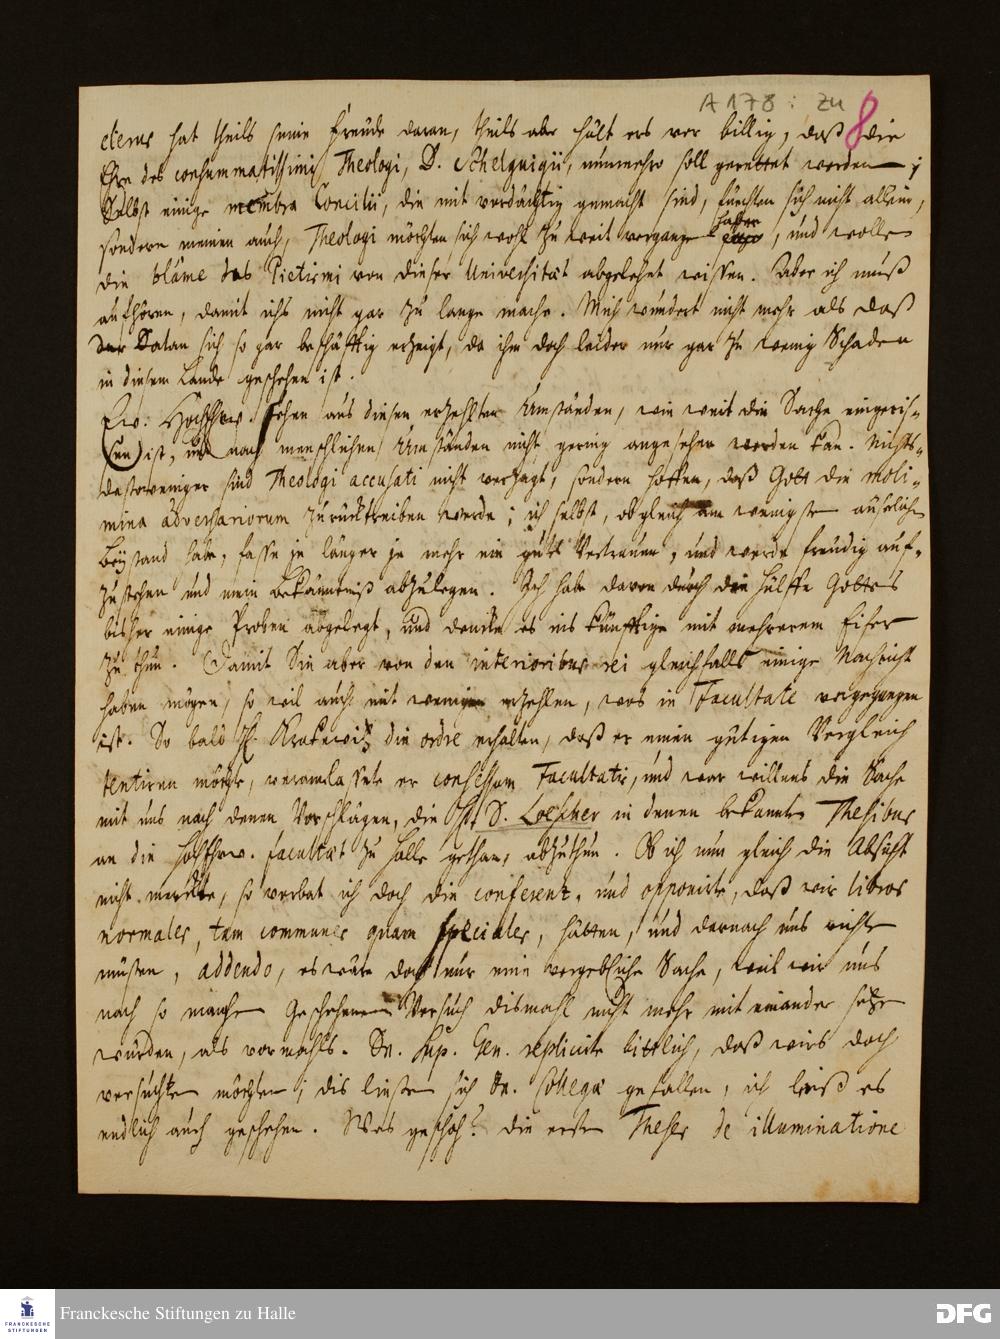 A 178 : zu 8
clerus hat theils seine Freude daran, theils aber hält ers vor billig, daß die
Ehre des consummatissimi Theologi, D. Schelguigii, nunmehro soll gerettet werden;
Selbst einige membra Concilii, die mit verdächtig gemacht sind, fürchten sich nicht allein,
sondern meinen auch, Theologi möchten sich wohl zu weit vergangen haben, und wollen
die blâme des Pietismi von dieser Universität abgelehnt wissen. Aber ich muß
aufhören, damit ichs nicht gar zu lange mache. Mich wundert nicht mehr als daß
der Satan sich so gar beschäfftig erzeigt, da ihm doch leider nur gar zu wenig Schaden
in diesem Lande geschehen ist.
Ew: Hochehrw. sehen aus diesen erzehlten Umständen, wie weit die Sache eingeris-
sen ist, und nach menschlichen Umständen nicht gering angesehen werden kan. Nichts-
destoweniger sind Theologi accusati nicht verzagt, sondern hoffen, daß Gott die moli-
mina adversariorum zurücktreiben werde; ich selbst, obgleich am wenigsten äußerlichen
Beystand habe, fasse je länger je mehr ein gutes Vertrauen, und werde freudig auf-
zustehen und mein Bekäntniß abzulegen. Ich habe davon durch die Hülffe Gottes
bisher einige Proben abgelegt, und dencke es ins künfftige mit mehrerem Eifer
zu thun. Damit Sie aber von den interioribus rei gleichfalls einige Nachricht
haben mögen, so wil auch mit wenigen erzehlen, was in Facultate vorgegangen
ist. So bald H. Krakewitz die ordre erhalten, daß er einen gütigen Vergleich
tentiren möchte, veranlassete er consessum Facultatis, und war willens die Sache
mit uns nach denen Vorschlägen, die H. D. Loescher in denen bekannten Thesibus
an die Hochehrw. Facultät zu Halle gethan, abzuthun. Ob ich nun gleich die Absicht
nicht merckte, so verbat ich doch die conferentz, und opponirte, daß wir libros
normales, tam communes quam speciales, hätten, und darnach uns richten
müsten, addendo, es wäre doch nur eine vergebliche Sache, weil wir uns
nach so manchen Geschehenen Versuch dismahl nicht mehr mit einander setzen
würden, als vormahls. Hr. Sup. Gen. replicirte bittlich, daß wirs doch
versuchen möchten; dis ließen sich Hr. Collega gefallen, ich ließ es
endlich auch geschehen. Was geschah? die ersten Theses de illuminatione
FRANCKESCHE STIFTUNGEN
Franckesche Stiftungen zu Halle
DFG